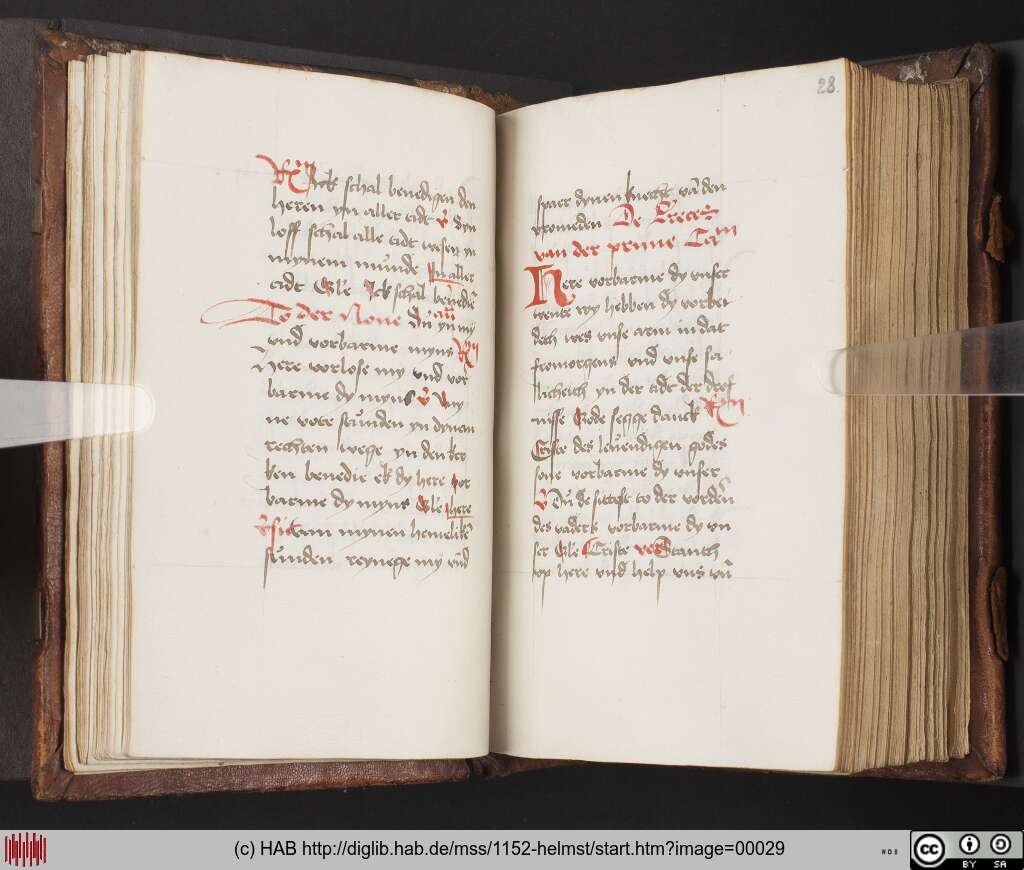 Ick schal benedigen den
heren yn aller tidt v̄ Syn
loff schal alle tidt wesen yn
mynem munde In aller
tidt Gl'e Ick schal benediē
To der None Du yn my
vnd vorbarme myns Rm
Here vorlose my vnd vor
barme dy myns v̄ My
ne vote stunden yn dynen
rechten wege yn den ker
ken benedie ek dy here vor
barme dy myns Gl'e here
v̄sic van mynen hemelikē
sunden reynege my vnd
28.
spaer dynen knecht vā den
vromeden De Preces
van der prime
Here vorbarme dy vnser
wente wy hebben dy vorbei
deth wes vnse arm in dat
fromorgens vnd vnse sa
licheith yn der tidt der drof
nisse Gode segge danck Rm
Criste des leuendigen godes
sone vorbarme dy vnser
v̄ Du de sittest to der vorderē
des vaders vorbarme dy vn
ser Gl'e Criste ver Stant
vp here vnd help vns vn̄
(c) HAB http://diglib.hab.de/mss/1152-helmst/start.htm?image=00029
WDB
cc BY SA